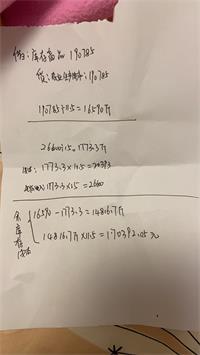 借：库存商品 190785
贷：主业任务成本：190785
190785÷11.5=16590斤
26600÷15=1773.3斤
1773.3×11.5=20393
1773.3×15=2660
余库存
16590-1773.3=14816.7斤
14816.7斤×11.5=170392.05元